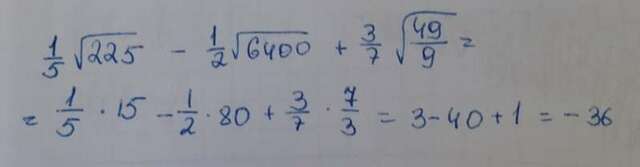 1/5 √225 - 1/2 √6400 + 3/7 √(49/9) =
= 1/5 · 15 - 1/2 · 80 + 3/7 · 7/3 = 3 - 40 + 1 = - 36